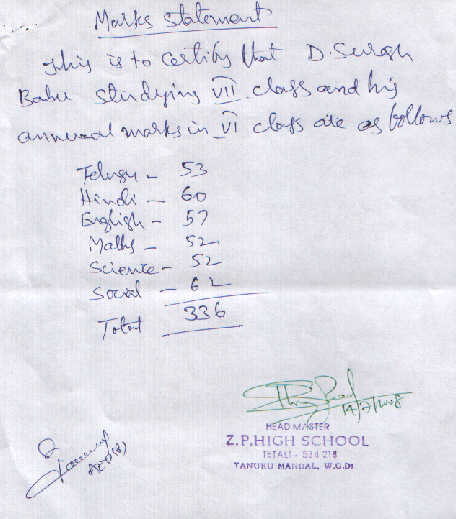 Marks Statement
This is to certify that D. Suresh
Babu studying VII class and his
annual marks in VI class are as follows
Telugu - 53
Hindi - 60
English - 57
Maths - 52
Science - 52
Social - 62
Total 336
HEAD MASTER
Z.P.HIGH SCHOOL
TETALI - 534 218
TANUKU MANDAL, W.G.Dt